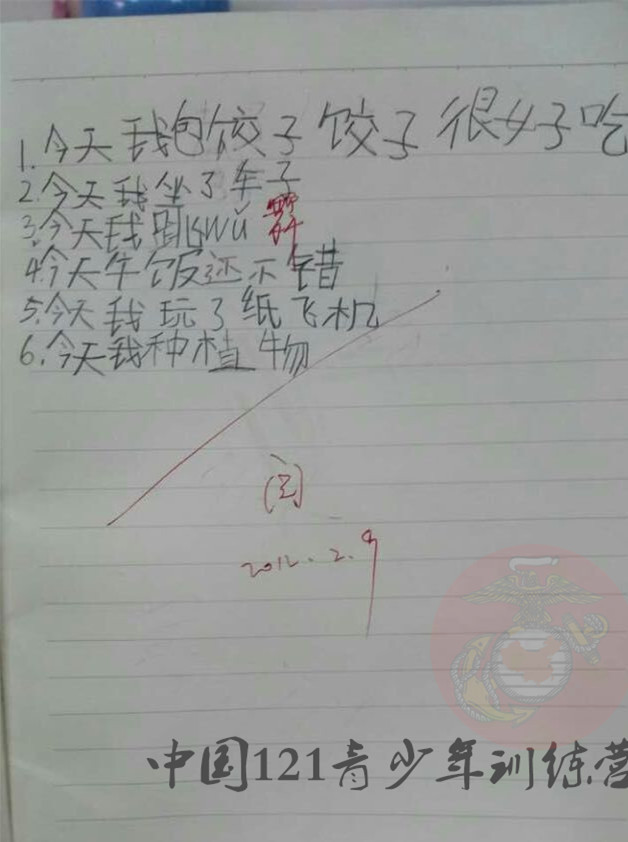 1.今天我包饺子饺子很好吃
2.今天我坐了车子
3.今天我跳wǔ 舞
4.今天午饭还不错
5.今天我玩了纸飞机
6.今天我种植物
阅
2012.2.9
中国121青少年训练营